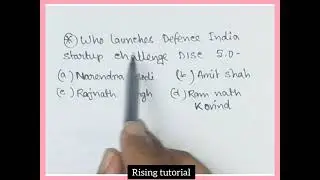 (*) Who launches Defence India
startup challenge DISC 5.0-
(a) Narendra Modi (b) Amit shah
(c) Rajnath (d) Ram nath
Kovind
Rising tutorial